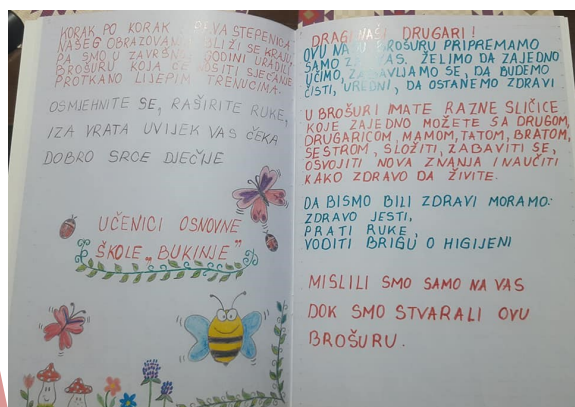 KORAK PO KORAK, PRVA STEPENICA
NAŠEG OBRAZOVANJA BLIŽI SE KRAJU
PA SMO U ZAVRŠNOJ GODINI URADILI
BROŠURU KOJA ĆE NOSITI SJEĆANJE
PROTKANO LIJEPIM TRENUCIMA.
OSMJEHNITE SE, RAŠIRITE RUKE,
IZA VRATA UVIJEK VAS ČEKA
DOBRO SRCE DJEČIJE
UČENICI OSNOVNE
ŠKOLE „BUKINJE"
DRAGI NAŠI DRUGARI!
OVU NAŠU BROŠURU PRIPREMAMO
SAMO ZA VAS. ŽELIMO DA ZAJEDNO
UČIMO, ZABAVLJAMO SE, DA BUDEMO
ČISTI, UREDNI, DA OSTANEMO ZDRAVI
U BROŠURI IMATE RAZNE SLIČICE
KOJE ZAJEDNO MOŽETE SA DRUGOM,
DRUGARICOM, MAMOM, TATOM, BRATOM,
SESTROM, SLOŽITI, ZABAVITI SE,
OSVOJITI NOVA ZNANJA I NAUČITI
KAKO ZDRAVO DA ŽIVITE.
DA BISMO BILI ZDRAVI MORAMO:
ZDRAVO JESTI,
PRATI RUKE,
VODITI BRIGU O HIGIJENI
MISLILI SMO SAMO NA VAS
DOK SMO STVARALI OVU
BROŠURU.